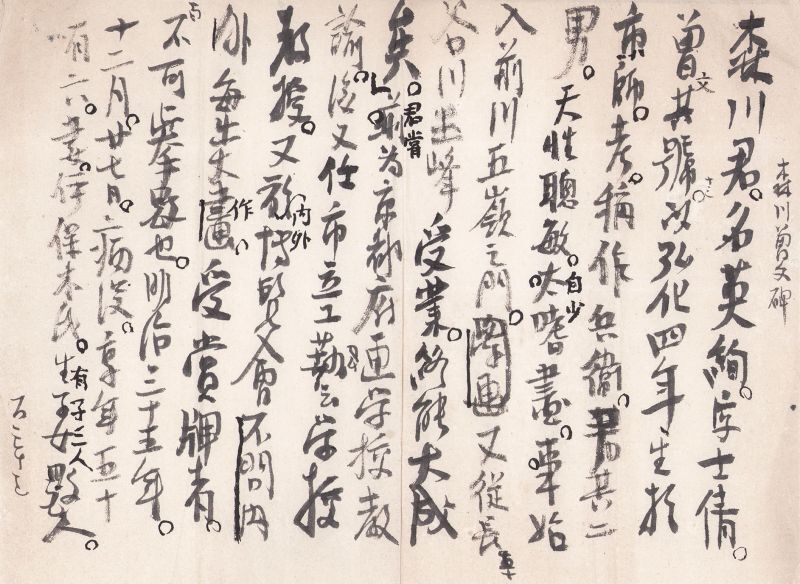 森川曽文碑
森川君。名英絢。字士倩。
曽文其號。以弘化四年生於
京師。考稱作兵衞。君其二
男。天性聰敏。自少太嗜畫。事始
入前川五嶺之門。学画又從長
谷川玉峰受業。終能大成
矣。君嘗前為京都府画学校教
諭。後又任市立工藝学校
教授。又於内外博覧会不問内
外每出大作畫、受賞牌者。
不可舉數也。明治三十五年。
十二月。廿七日。病没。享年五十
有六。妻。伊保木氏。生有子三人女